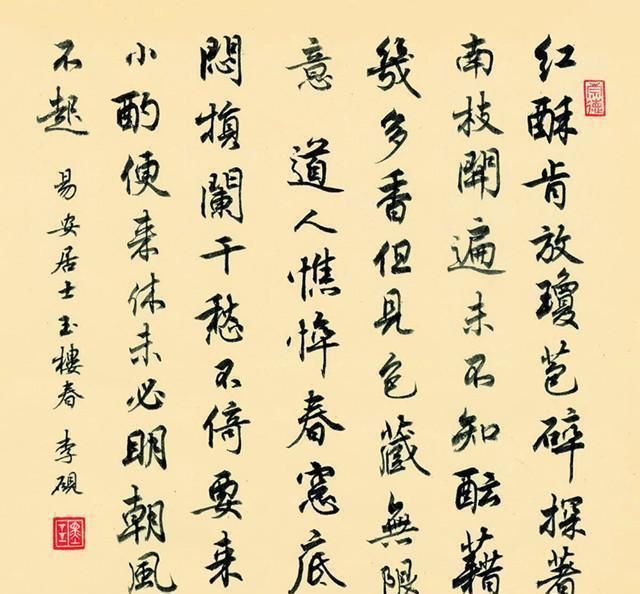 红酥肯放瓊苞碎探著
南枝開遍未不知酝藉
幾多香但見包藏無限
意 道人憔悴春窓底
悶損闌干愁不倚要来
小酌便来休未必明朝風
不起 易安居士玉樓春 李硯
崇德